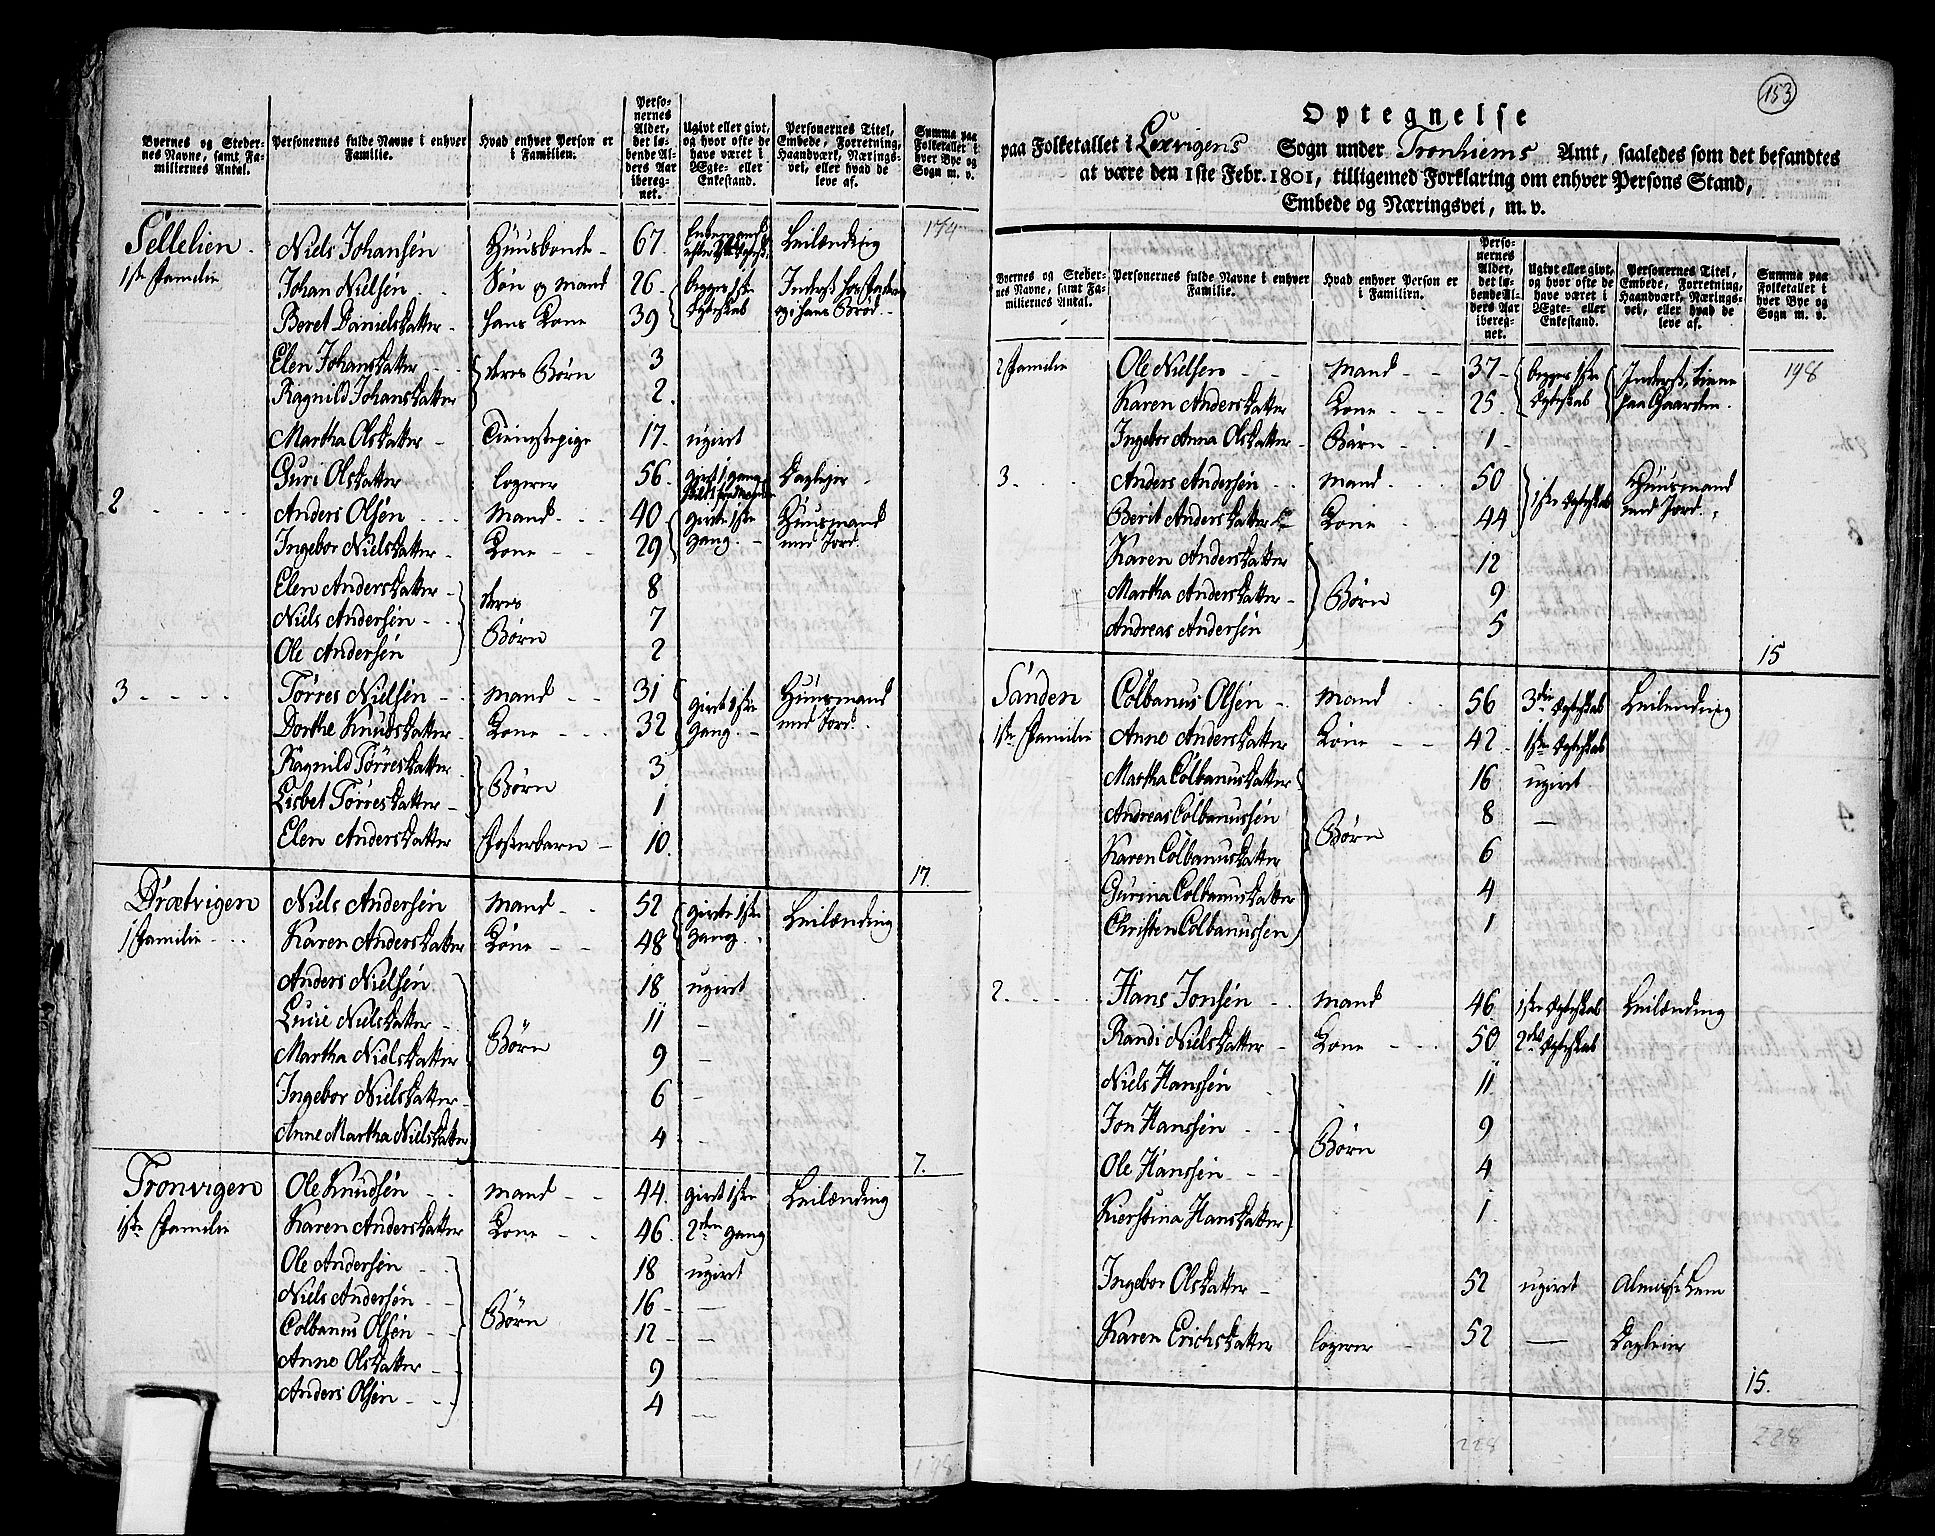 Byernes og Steder-
nes Navne, samt Fa-
miliernes Antal.
Personernes fulde Navne i enhver
Familie.
Hvad enhver Person er
i Familien.
Perso-
nernes
Alder,
det lø-
bende Al-
ders Aar
ibereg-
net.
Ugivt eller givt,
og hvor ofte de
have været i
Ægte- eller
Enkestand.
Personernes Titel,
Embede, Forretning,
Haandværk, Nærings-
vei, eller hvad de
leve af.
Summa paa
Folketallet i
hver Bye og
Sogn m. v.
174
Sellelien Niels Johansen Huusbonde 67. Leilænding
1ste Familie Johan Nielsen Søn og mand 26 begge 1ste
Beret Danielsdatter hans Kone 39 Ægteskab og i hans Brød
Elen Johansdatter deres Børn 3
Ragnild Johansdatter 2
Martha Olsdatter Tienistepige 17. ugivt
Guri Olsdatter logerer 56 givt 1 gang
2 Anders Olsen Mand 40 givte 1ste Huusmand
Ingebor Nielsdatter Kone 29 gang med Jord
Elen Andersdatter deres 8
Niels Andersen Børn 7
Ole Andersen 2
3 Törres Nielsen Mand 31 givt 1ste Huusmand
Dorthe Knudsdatter Kone 32 gang med Jord
Ragnild Törresdatter Børn 3
Lisbet Törresdatter 1
Elen Andersdatter Fosterbarn 10
17.
Drætvigen Niels Andersen Mand 52 givte 1ste Leilænding
1 Familie Karen Andersdatter Kone 48 gang
Anders Nielsen 18 ugivt
Lucie Nielsdatter Børn 11 –
Martha Nielsdatter 9 –
Ingebor Nielsdatter 6 –
Anne Martha Nielsdatter 4 –
7.
Tronvigen Ole Knudsen Mand 44 givt 1ste Leilænding
1ste Familie Karen Andersdatter Kone 46 2den gang
Ole Andersen 18 ugivt
Niels Andersen Børn 16 –
Colbanus Olsen 12 –
Anne Olsdatter 9 –
Anders Olsen 4 –
198
153
Optegnelse
paa Folketallet i Lexvigens Sogn under Tronhiems Amt, saaledes som det befandtes
at være den 1ste Febr. 1801, tilligemed Forklaring om enhver Persons Stand,
Embede og Næringsvei, m. v.
Byernes og Steder-
nes Navne, samt Fa-
miliernes Antal.
Personernes fulde Navne i enhver
Familie.
Hvad enhver Person er
i Familien.
Perso-
nernes
Alder,
det lø-
bende Al-
ders Aar
ibereg-
net.
Ugivt eller givt,
og hvor ofte de
have været i
Ægte- eller
Enkestand.
Personernes Titel,
Embede, Forretning,
Haandværk, Nærings-
vei, eller hvad de
leve af.
Summa paa
Folketallet i
hver Bye og
Sogn m. v.
2 Familie Ole Nielsen Mand 37 begge 1ste Inderst, tiener 198
Karen Andersdatter Kone 25 Ægteskab paa Gaarden
Ingebor Anna Olsdatter Børn 1
3 Anders Andersen Mand 50 1ste Ægteskab Huusmand
Berit Andersdatter Kone 44 med Jord
Karen Andersdatter 12
Martha Andersdatter Børn 9
Andreas Andersen 5
15
Sanden Colbanus Olsen Mand 56 3die Ægteskab Leilending
1ste Familie Anne Andersdatter Kone 42 1ste Ægteskab
Martha Colbanusdatter 16 ugivt
Andreas Colbanussen Børn 8 –
Karen Colbanusdatter 6
Gurina Colbanusdatter 4
Christen Colbanussen 1
2 Hans Jonsen Mand 46 1ste Ægteskab Leilænding
Randi Nielsdatter Kone 50 2det Ægteskab
Niels Hanssen 11
Jon Hanssen Børn 9
Ole Hanssen 4
Kierstina Hansdatter 1
Ingebor Olsdatter 52 ugivt Almisse Lem
Karen Erichsdatter logerer 52 –
15.
228 228